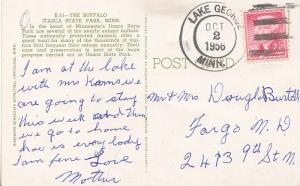 E-51—THE BUFFALO
ITASCA STATE PARK, MINN.
In the heart of Minnesota's Itasca State
Park are several of the nearly extinct buffalo.
These animals protected animals after a
great treat for many of the thousands of vis-
itors that frequent their refuge annually. Their
care and preservation is part of the huge
program carried on at Itasca State Park.
I am at the lake
with Mrs
we are going to stay
this week and then
we go to home
how is every body
I am fine Love
Mother
LAKE GEORGE
OCT
2
1956
MINN.
2¢
POST
Mr and Mrs Dough
Fargo N. D
2413 9th St N